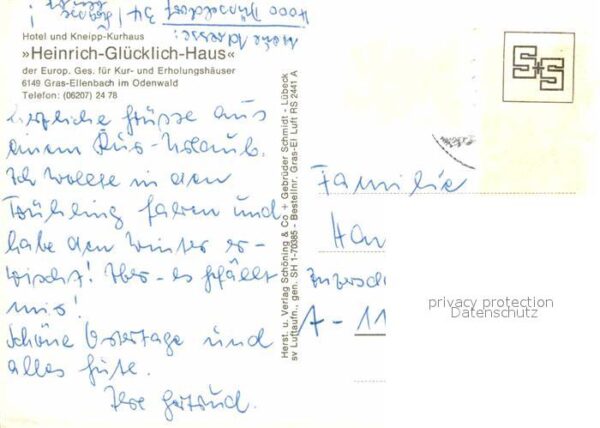 Meine Adresse:
4000 Düsseldorf
Hotel und Kneipp-Kurhaus
»Heinrich-Glücklich-Haus«
der Europ. Ges. für Kur- und Erholungshäuser
6149 Gras-Ellenbach im Odenwald
Telefon: (06207) 24 78
Herzliche Grüsse aus
einem Kur-Urlaub.
Ich wollte in den
Frühling fahren und
habe den Winter er-
wischt! Aber - es gefällt
mir!
Schöne Ostertage und
alles Gute.
Ihre Gertrud.
Herst. u. Verlag Schöning & Co + Gebrüder Schmidt - Lübeck
sv Luftaufn., gen. SH 1-70385 - Bestellnr. Gras-El Luft RS 2441 A
S+S
Familie
Han
A - 11
privacy protection
Datenschutz